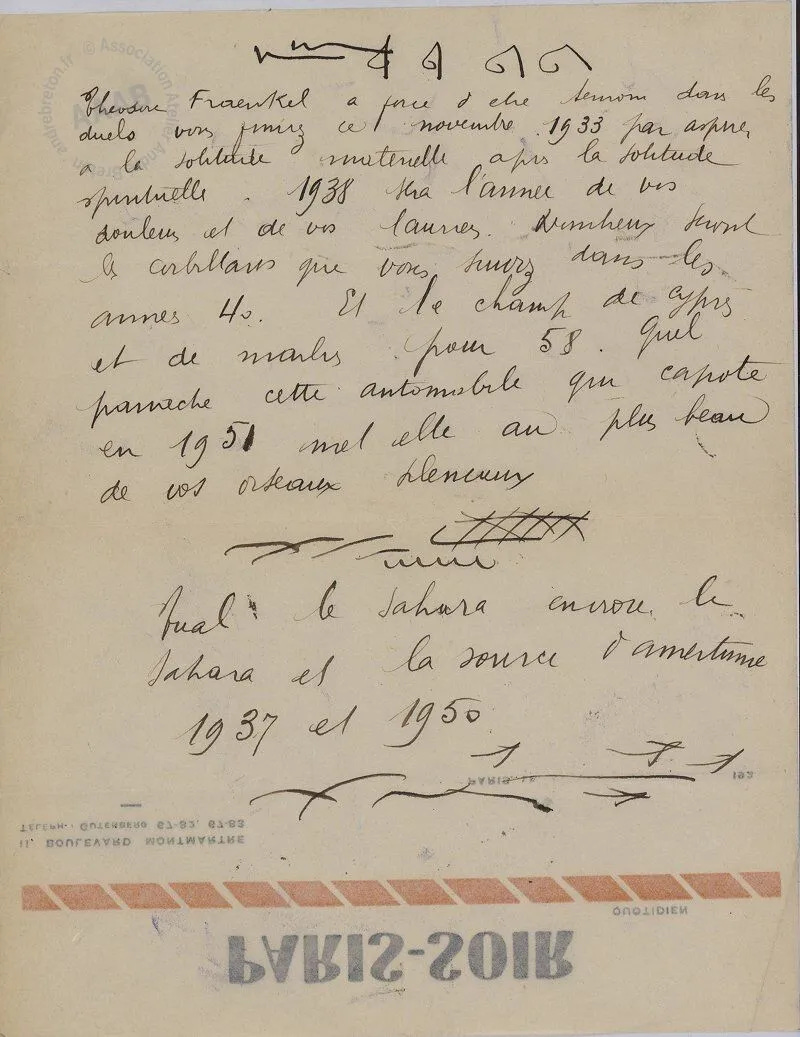 © Association Atelier André Breton andrebreton.fr
Théodore Fraenkel a force d être temoin dans les
duels vous finirez ce novembre 1933 par aspirer
a la solitude materielle apres la solitude
spirituelle. 1938 sera l'année de vos
douleurs et de vos lauriers. Nombreux seront
les corbillards que vous suivrez dans les
annees 40. Et le champ de cyprès
et de marbres pour 58. Quel
panache cette automobile qui capote
en 1951 met elle au plus beau
de vos oiseaux
Tual le Sahara encore le
Sahara et la source d'amertume
1937 et 1950
PARIS, LE 192
TÉLÉPH.: GUTENBERG 67-82, 67-83
11, BOULEVARD MONTMARTRE
QUOTIDIEN
PARIS-SOIR